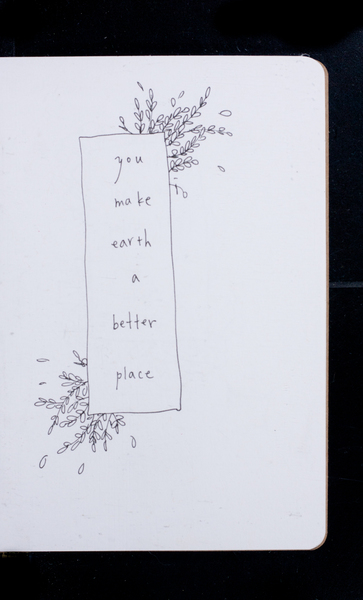 you
make
earth
a
better
place